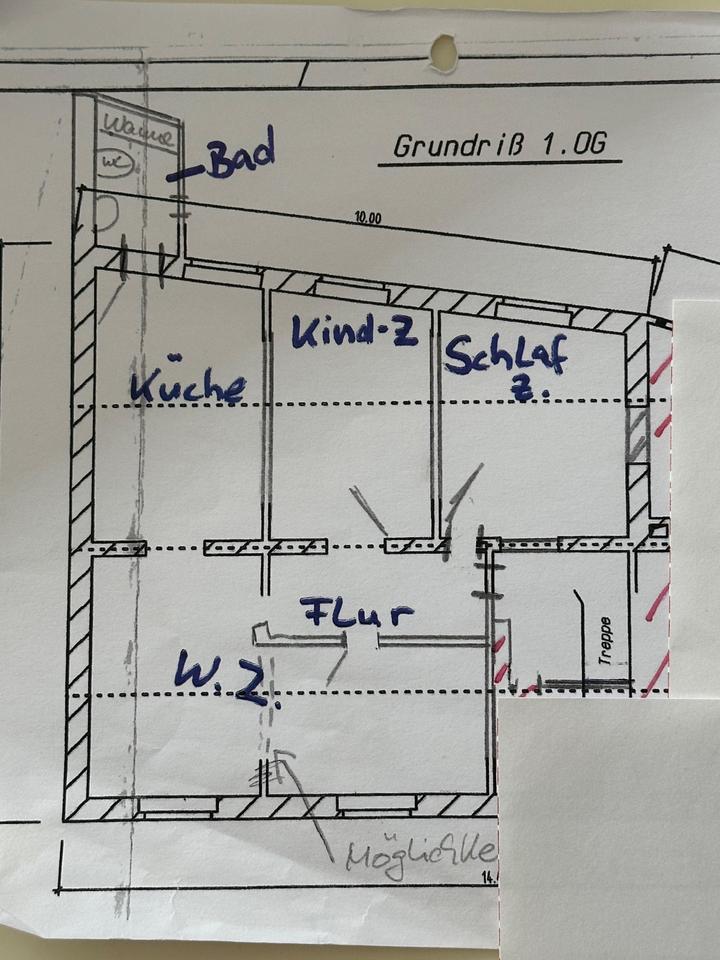 Wanne
WC
Bad
Grundriß 1.OG
10.00
Kind-Z
Schlaf
Z.
Küche
Flur
Treppe
W.Z.
Möglichke
14.